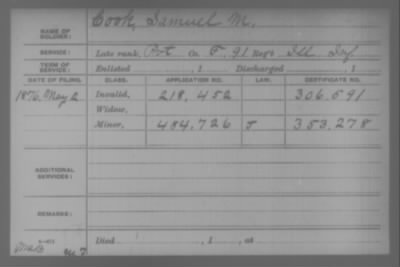 NAME OF SOLDIER: Cook, Samuel M.
SERVICE: Late rank, Pvt Co. F, 91 Reg't Ill Inf
TERM OF SERVICE: Enlisted , 1 Discharged , 1
DATE OF FILING. CLASS. APPLICATION NO. LAW. CERTIFICATE NO.
1876, May 2 Invalid, 218,452 306,591
Widow,
Minor, 484,726 J 353,278
ADDITIONAL SERVICES:
REMARKS:
Died , 1 , at